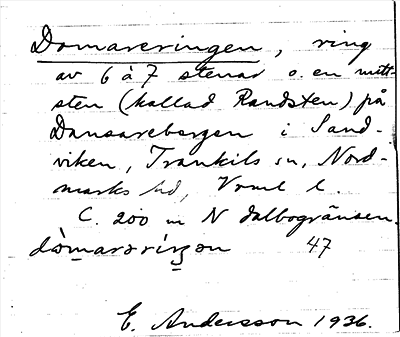 Domareringen, ring
av 6 à 7 stenar o. en mitt-
sten (kallad Randsten) på
Dansarebergen i Sand-
viken, Trankils sn, Nord-
marks hd, Vrml l.
C. 200 m N dalbogränsen.
dòmarərìŋən 47
E. Andersson 1936.